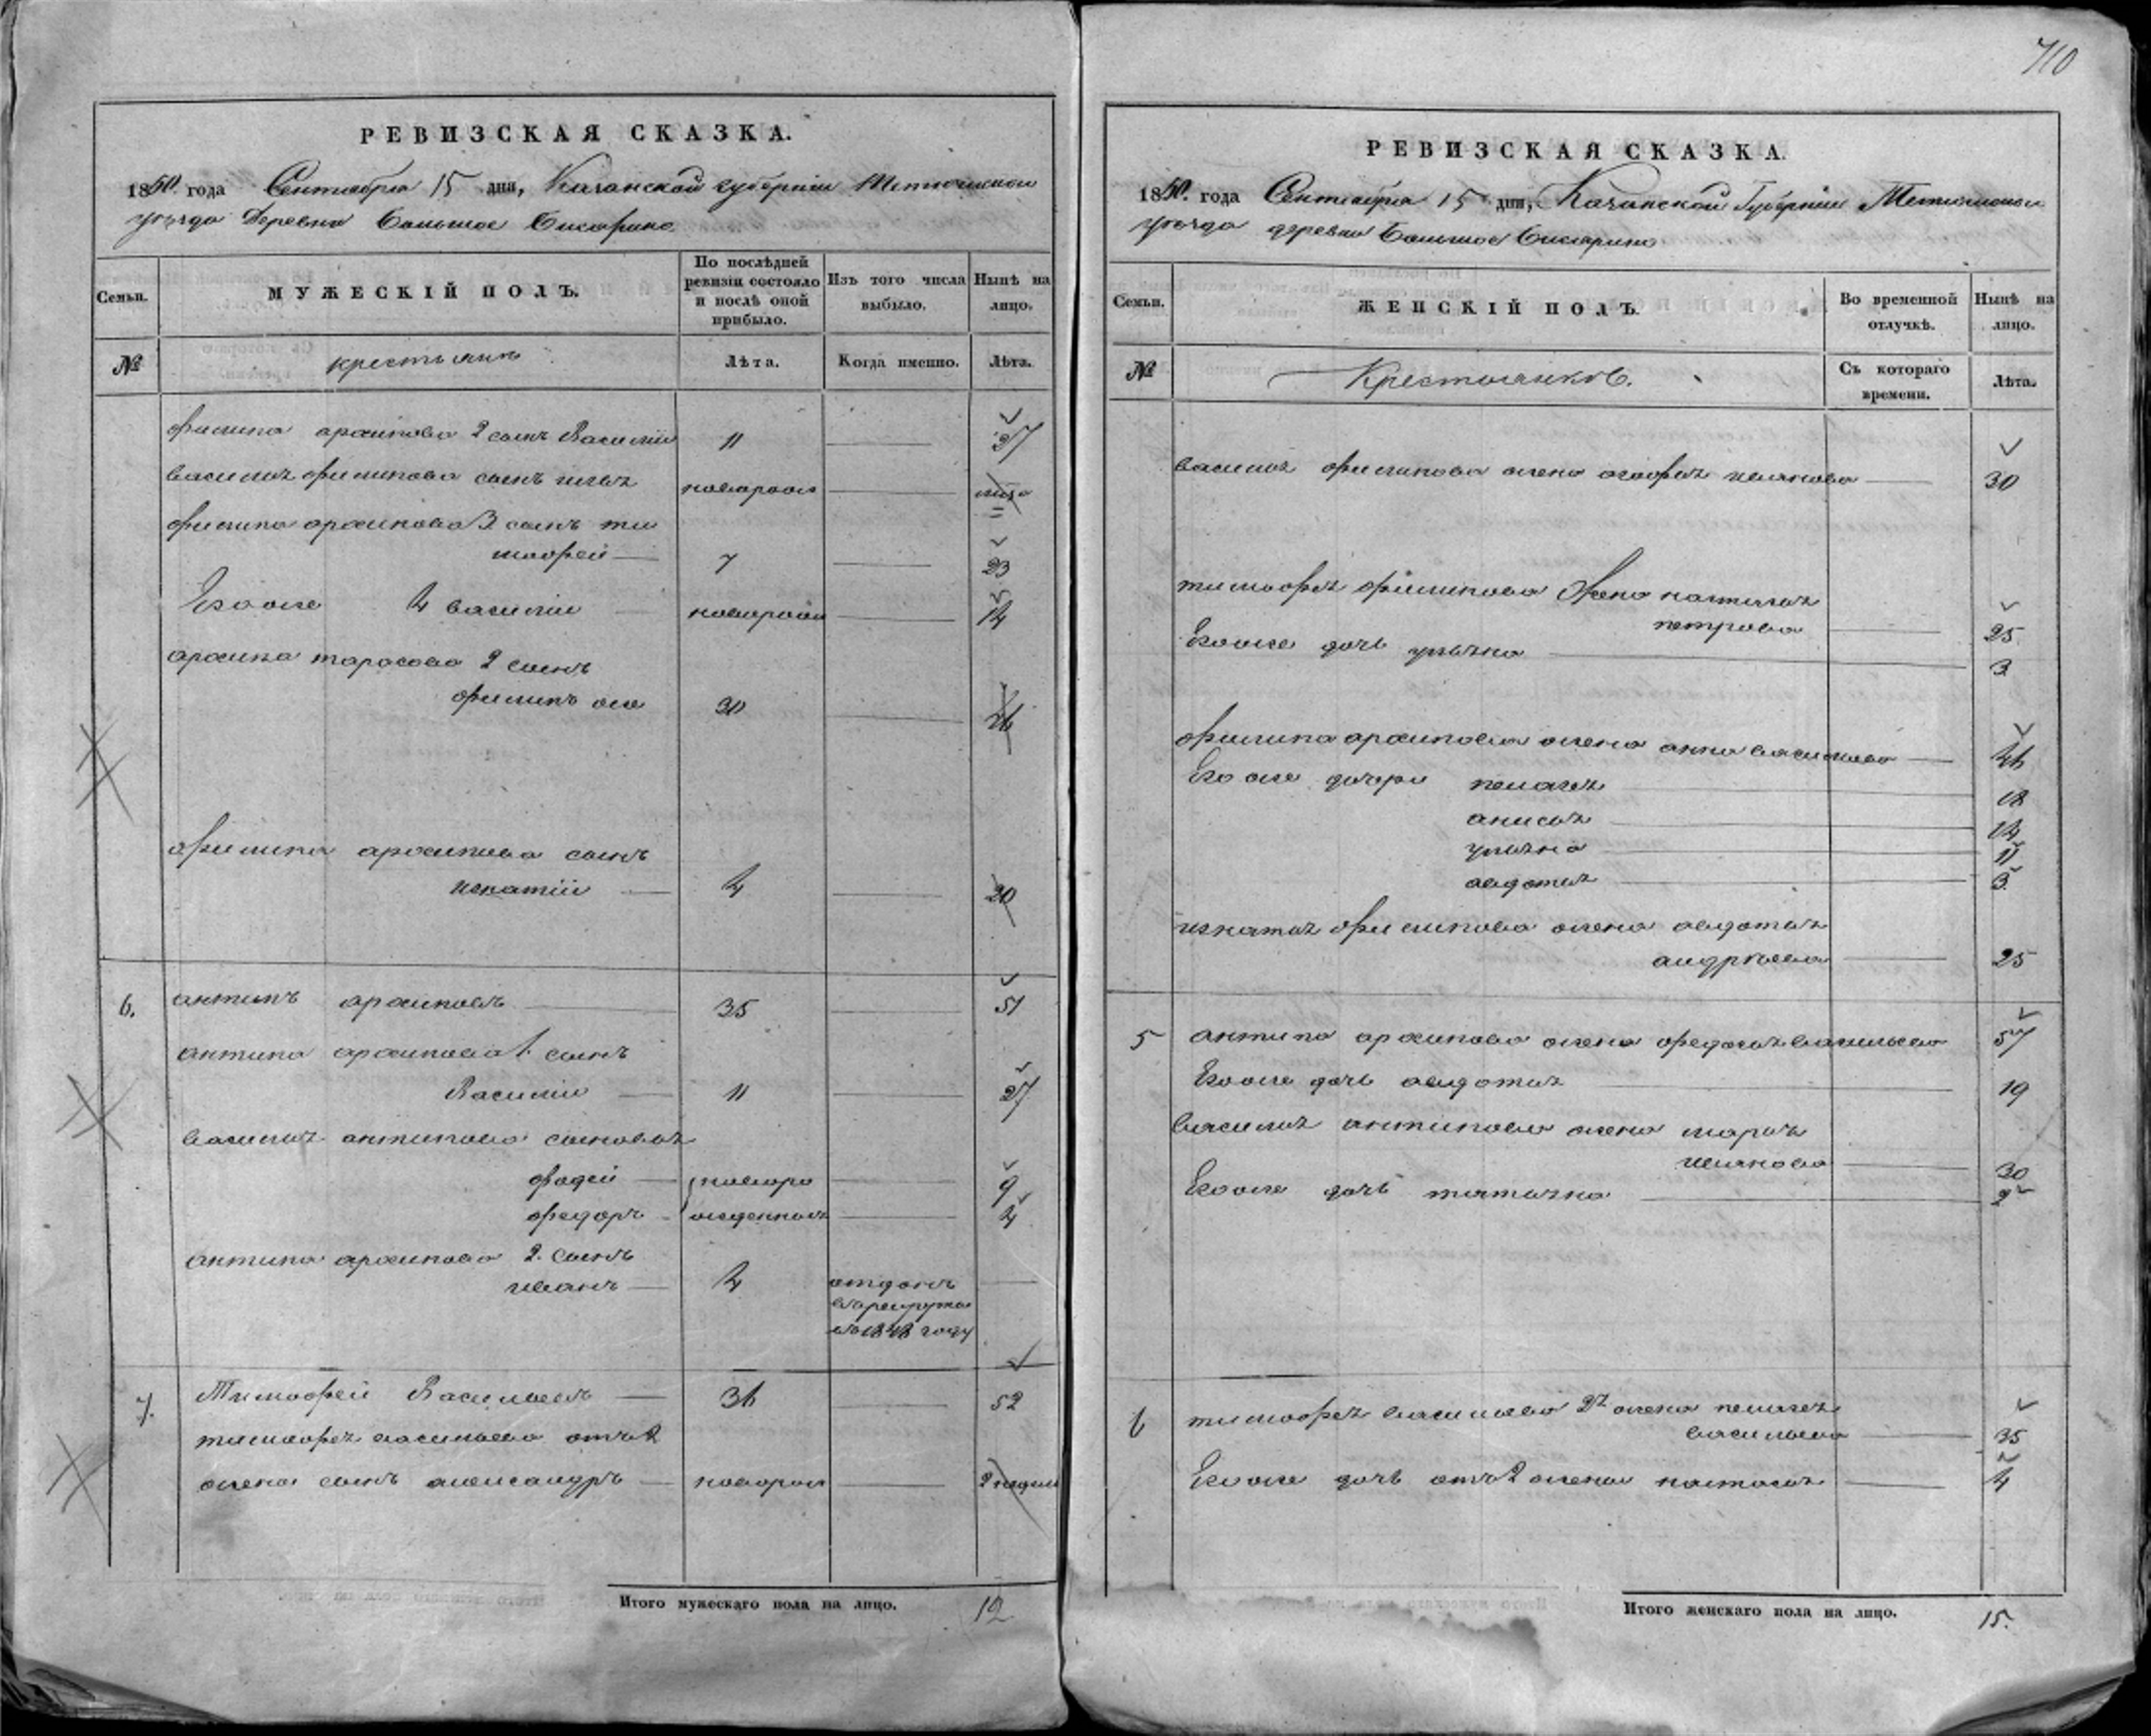 710
РЕВИЗСКАЯ СКАЗКА.
1850. года Сентября 15 дня, Казанской губернии Тетюшской
уезда Деревни Большое
МУЖЕСКІЙ ПОЛЪ.
Семьи.
По послѣдней ревизіи состояло и послѣ оной прибыло.
Изъ того числа выбыло.
Нынѣ на лицо.
№
крестьянъ
Лѣта.
Когда именно.
Лѣта.
филипа архипова 2 сынъ Василии 11 27
василья филипова сынъ новорож
филипа архипова 3 сынъ ти
мофей 7 23
Его же 4 василии новорож 14
архипа тарасова 2 сынъ
филипъ же 30 46
филипа архипова сынъ
игнатіи 4 20
6. антипъ архиповъ 35 51
антипа архипова 1. сынъ
Василіи 11 27
василья антипова сыновья
фадей новоро 9
федоръ жденныя 4
антипа архипова 2. сынъ
иванъ 4 отданъ
в рекруты
въ 1848 году
7. Тимофей Васильевъ 36 52
тимофея васильева отъ 2
жены сынъ александръ новорож 2 недели
Итого мужескаго пола на лицо. 12
РЕВИЗСКАЯ СКАЗКА.
1850. года Сентября 15 дня, Казанской Губерніи Тетюшской
уезда деревни Большое
Семьи.
ЖЕНСКІЙ ПОЛЪ.
Во временной отлучкѣ.
Нынѣ на лицо.
№
Крестьянковъ.
Съ котораго времени.
Лѣта.
василья филипова жена иванова 30
тимофея филипова жена настасья
петрова 25
Его же дочь ульяна 3
филипа архипова жена анна васильева 46
Его же дочери пелагея 18
анисья 14
ульяна 11
авдотья 3
игнатья филипова жена авдотья
андрѣева 25
5 антипа архипова жена федосья васильева 57
Его же дочь авдотья 19
василья антипова жена марья
иванова 30
Его же дочь татьяна 2
6 тимофея васильева 2я жена пелагея
васильева 35
Его же дочь отъ 2 жены настасья 4
Итого женскаго пола на лицо. 15.